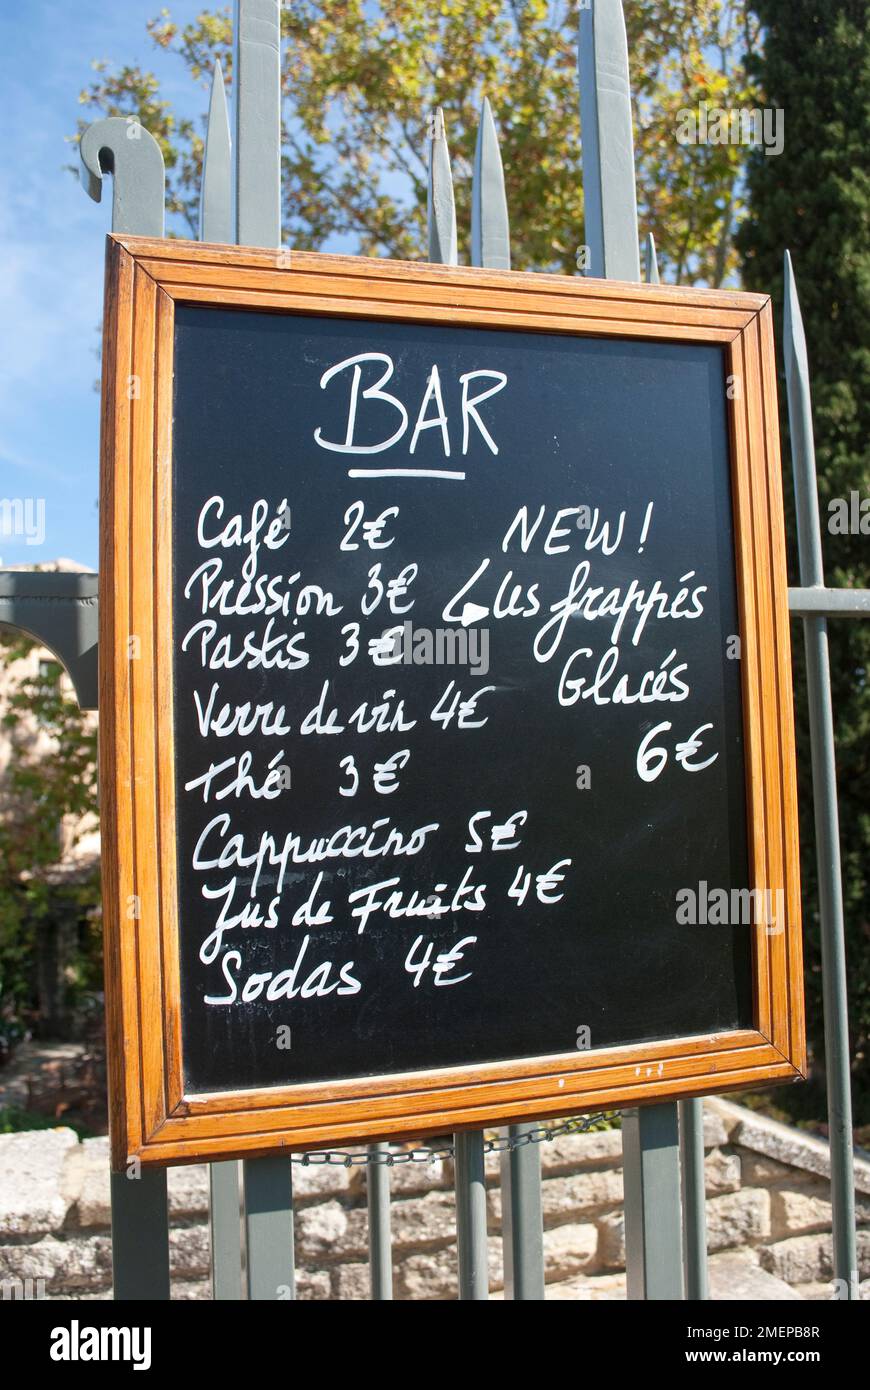 BAR
Café 2€
Pression 3€
Pastis 3€
Verre de vin 4€
Thé 3€
Cappuccino 5€
Jus de Fruits 4€
Sodas 4€
NEW!
Les frappés
Glacés
6€
alamy
alamy
Image ID: 2MEPB8R
www.alamy.com